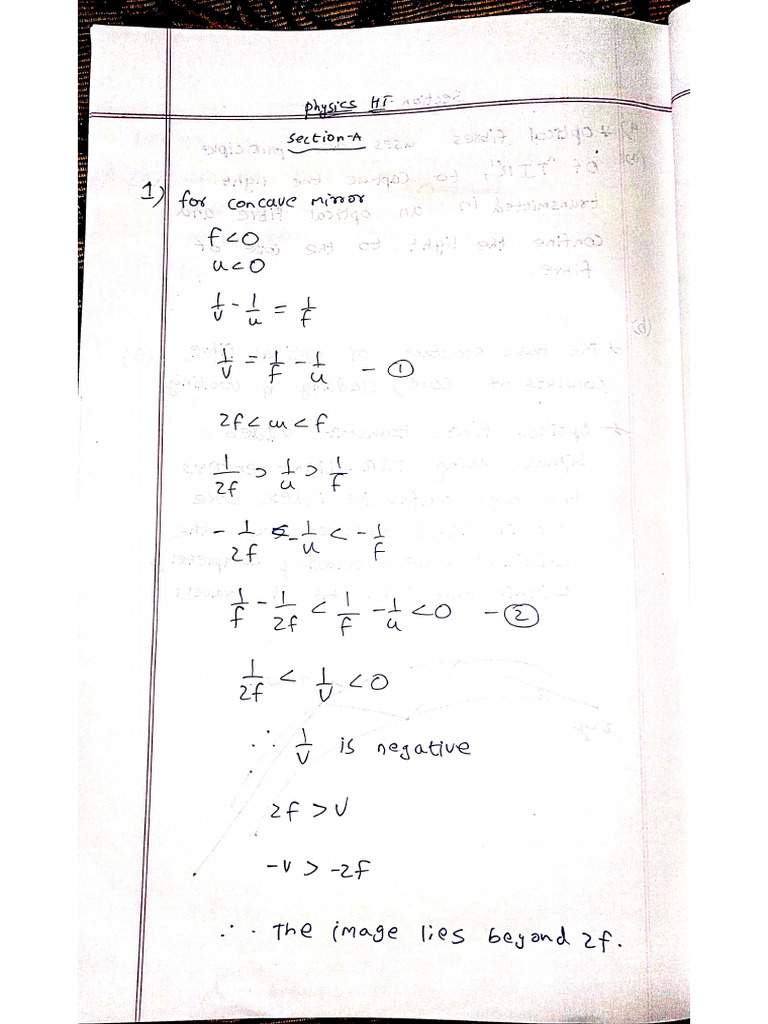 Physics HT.
Section-A
1) for concave mirror
f<0
u<0
1/v - 1/u = 1/f
1/v = 1/f - 1/u - ①
2f < u < f
1/2f > 1/u > 1/f
- 1/2f < - 1/u < - 1/f
1/f - 1/2f < 1/f - 1/u < 0 - ②
1/2f < 1/v < 0
∴ 1/v is negative
2f > v
-v > -2f
∴ The image lies beyond 2f.